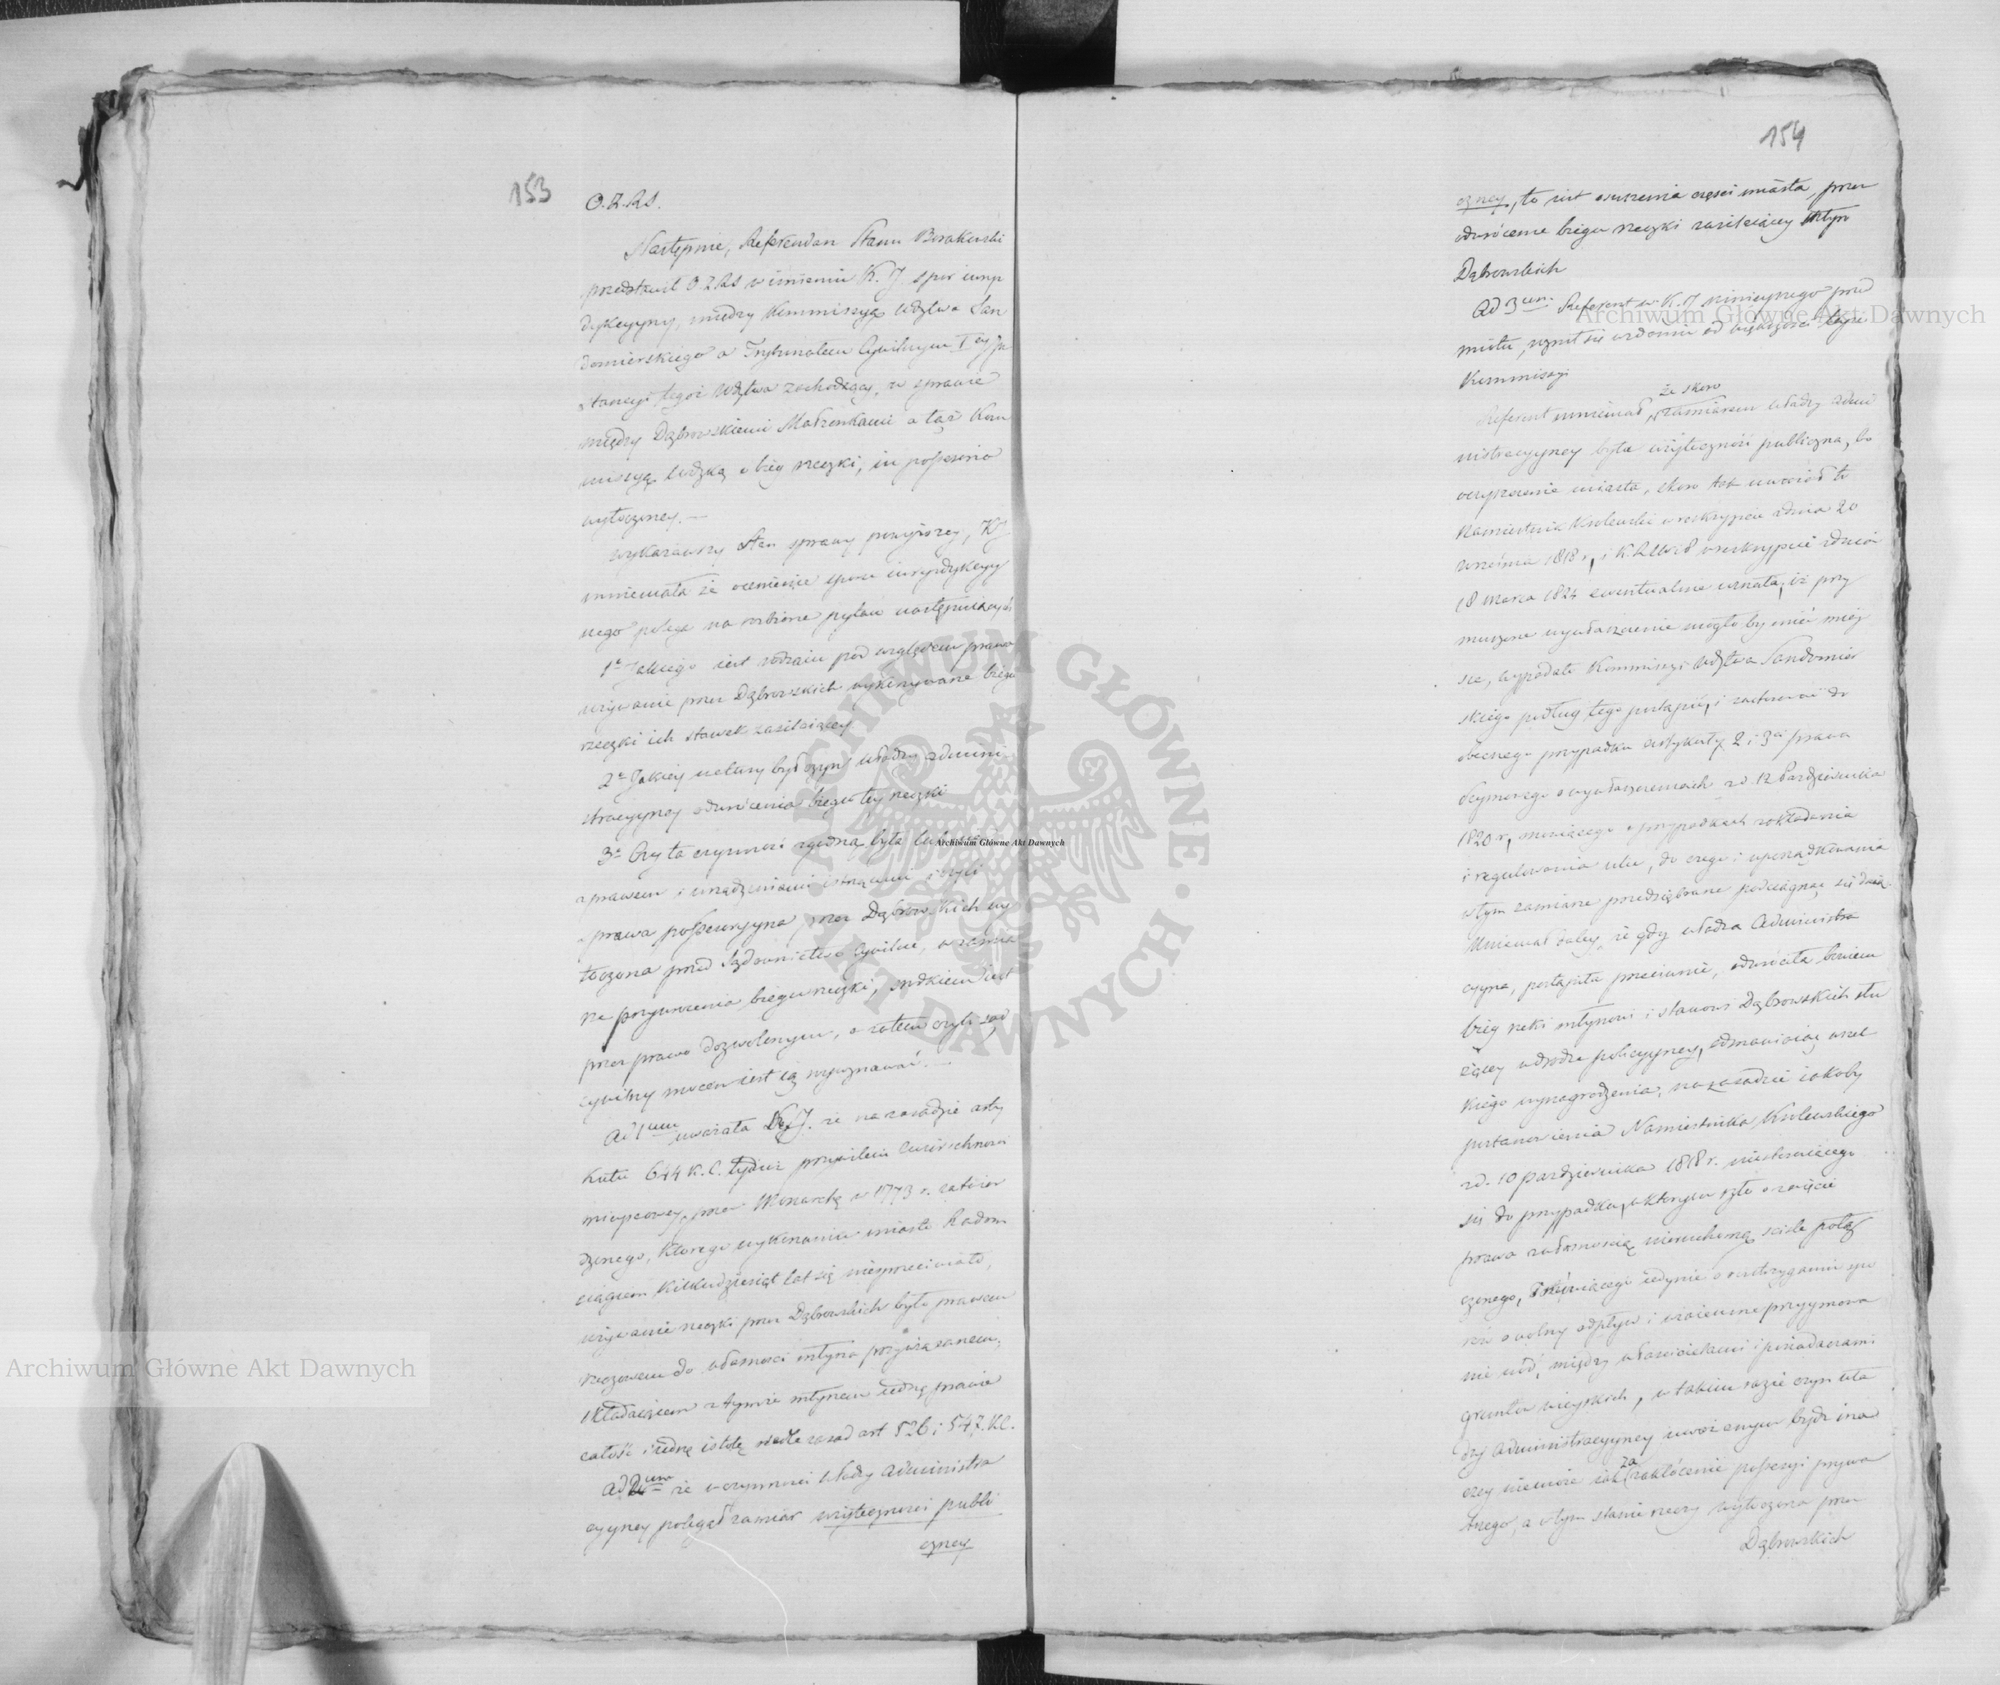 153
O.Z.RS.
Następnie, Referendarz Stanu Borakowski
przedstawił O.Z.RS w imieniu K. J. spór iuryz
dykcyyny, między Kommissyą Wdztwa San
domierskiego a Trybunałem Cywilnym I ey In
stancyi tegoż Wdztwa zachodzący, w sprawie
między Dąbrowskiemi Małżonkami a tąż Kom
missyą Wdzką o bieg rzeczki, in possesorio
wytoczoney. —
Wykazawszy stan sprawy powyższey, KJ
mniemała że ocenienie sporu iuryzdykcyy
nego polega na rozbiorze pytań następuiących
1e Jakiego iest rodzaiu pod względem prawa
używanie przez Dąbrowskich wykonywane biegu
rzeczki ich stawek zasilaiącey
2e Jakiey natury był czyn władzy admini-
stracyyney odwrócenia biegu tey rzeczki
3e Czy ta czynność zgodną była lub nie
z prawem i urządzeniami istnącemi i czyli
sprawa possessoryina przez Dąbrowskich wy
toczona przed Sądownictwo Cywilne, w zamia
rze przywrócenia biegu rzeczki, środkiem iest
przez prawo dozwolonym, a zatem czyli sąd
cywilny mocen iest ią rozpoznawać. —
Ad 1mum uważała K.J. że na zasadzie arty
kułu 644 K.C. tudzież przywileiu zwierzchności
mieyscowey, przez Monarchę w 1773 r. zatwier
dzonego, którego wykonaniu miasto Radom
ciągiem kilkudziesiąt lat się niesprzeciwiało,
używanie rzeczki przez Dąbrowskich było prawem
rzeczowem do własności młyna przywiązanem,
składaiącem z tymże młynem iednę prawie
całość i iednę istotę wedle zasad art 526 i 547. K.C.
Ad 2um że w czynności Władzy Administra
cyyney polegał zamiar użyteczności publi
czney
154
czney, to iest osuszenia części miasta, przez
odwrócenie biegu rzeczki zasilaiącey młyn
Dąbrowskich
Ad 3um. Referent w K. J. ninieyszego przed
miotu, różnił się w zdaniu od większości teyże
Kommissyi
że skoro
Referent mniemał, zamiarem władzy admi
nistracyyney była użyteczność publiczna, bo
oczyszczenie miasta, skoro tak uważał to
Namiestnik Królewski w reskrypcie z dnia 20
września 1818 r, i K.R.
18 Marca 1824 ewentualnie uznała, iż przy
muszone wywłaszczenie mogło by mieć miey
sce, wypadało Kommissyi Wdztwa Sandomier
skiego podług tego postąpić, i zastosować do
obecnego przypadku artykuły 2 i 3ci prawa
Seymowego o wywłaszczeniach z d. 12 Października
1820 r, mówiącego o przypadkach zakładania
i regulowania ulic, do czego i uporządkowania
w tym zamiarze przedsiębrane podciągnąć się daią.
Mniemał daley, że gdy władza Administra
cyyna, postąpiła przeciwnie, odwróciła bowiem
bieg rzeki młynowi i stawowi Dąbrowskich słu
żącey w drodze policyyney, odmawiaiąc wszel
kiego wynagrodzenia, na zasadzie iakoby
postanowienia Namiestnika Królewskiego
z d. 10 Października 1818 r. niestosuiącego
się do przypadku, w którym szło o zaięcie
prawa z własnością nieruchomą ściśle połą
czonego, mówiącego iedynie o rozstrzyganiu spo
rów o wolny odpływ i wzaiemne przyymowa
nie wód, między właścicielami i posiadaczami
gruntów wieyskich, w takim razie czyn wła
dzy Administracyyney uważanym bydź ina
czey niemoże iak za zakłócenie possesyi prywa
tnego, a w tym stanie rzeczy wytoczona przez
Dąbrowskich
Archiwum Główne Akt Dawnych
Archiwum Główne Akt Dawnych
Archiwum Główne Akt Dawnych
ARCHIWUM GŁÓWNE · AKT DAWNYCH ·